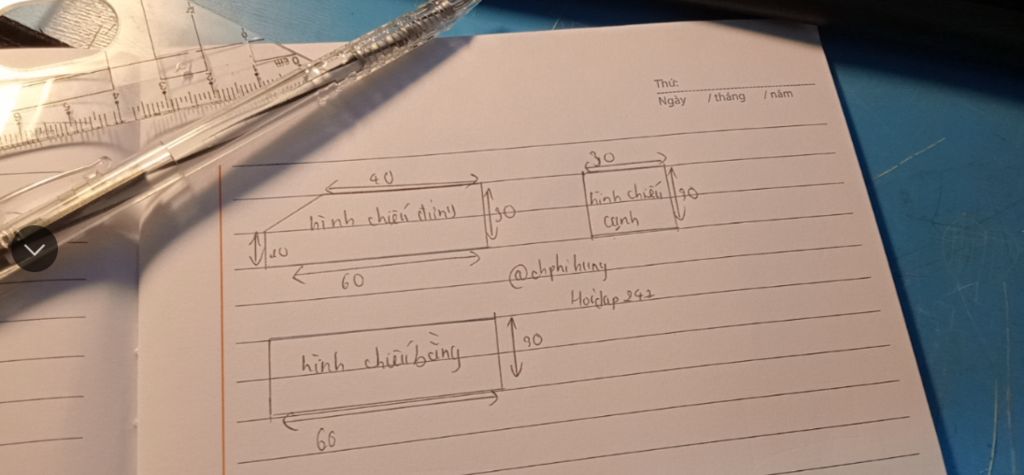 Thứ:
Ngày / tháng / năm
40
hình chiếu đứng
30
20
60
30
hình chiếu
cạnh
30
@chphihung
Hoidap 247
hình chiếu bằng
30
60